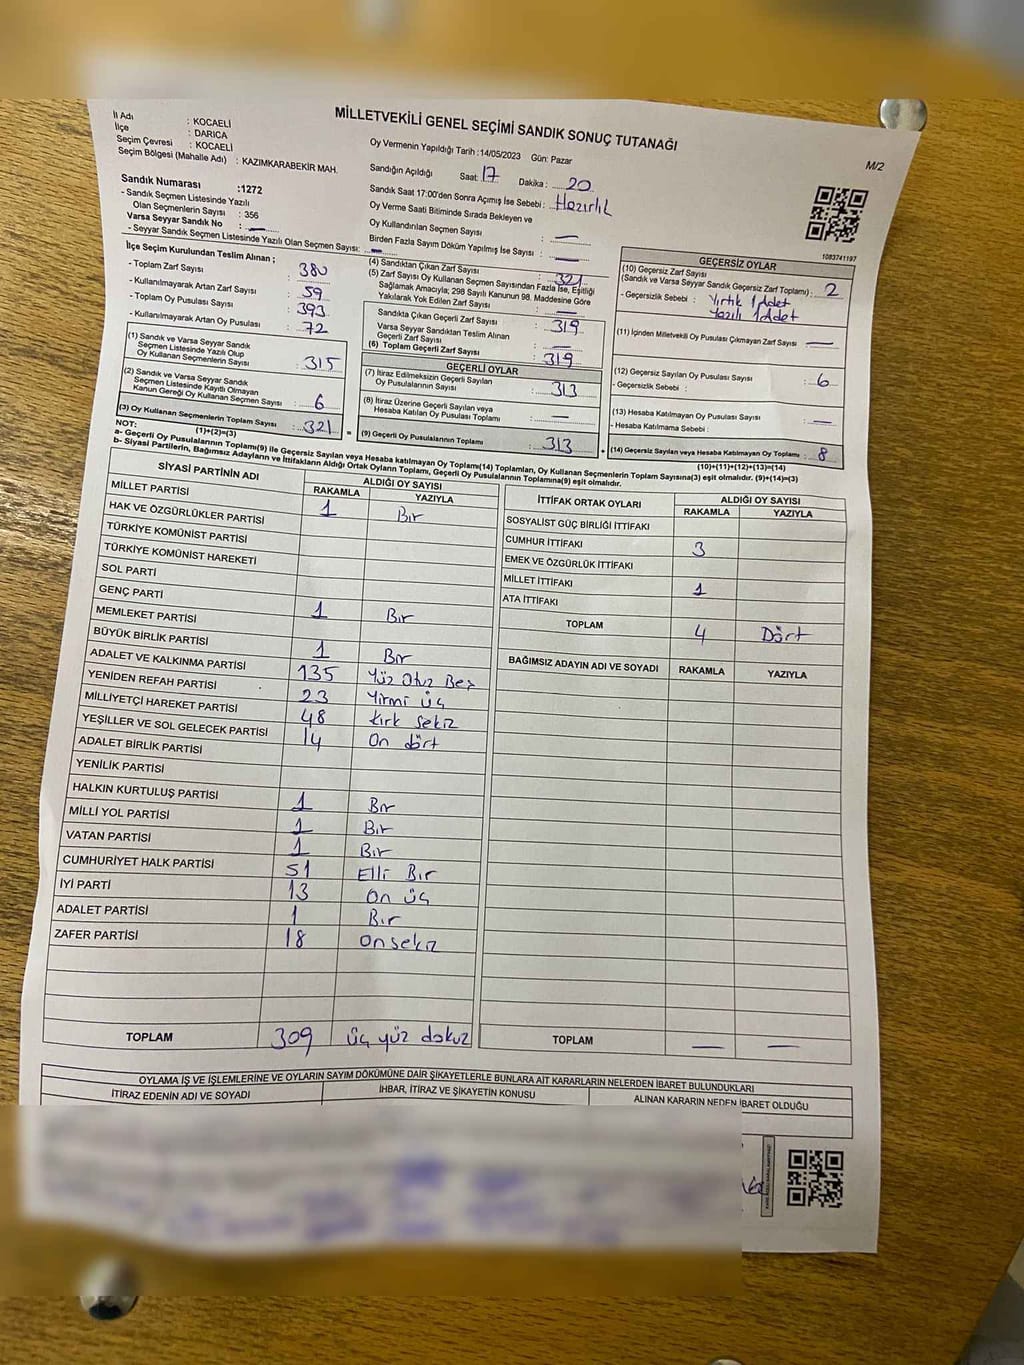 MİLLETVEKİLİ GENEL SEÇİMİ SANDIK SONUÇ TUTANAĞI
M/2
İl Adı : KOCAELİ
İlçe : DARICA
Seçim Çevresi : KOCAELİ
Seçim Bölgesi (Mahalle Adı) : KAZIMKARABEKİR MAH.
Sandık Numarası :1272
- Sandık Seçmen Listesinde Yazılı
Olan Seçmenlerin Sayısı : 356
Varsa Seyyar Sandık No : —
- Seyyar Sandık Seçmen Listesinde Yazılı Olan Seçmen Sayısı: —
Oy Vermenin Yapıldığı Tarih :14/05/2023 Gün: Pazar
Sandığın Açıldığı Saat: 17 Dakika : 20
Sandık Saat 17:00'den Sonra Açımış İse Sebebi : Hazırlık
Oy Verme Saati Bitiminde Sırada Bekleyen ve
Oy Kullandırılan Seçmen Sayısı : —
Birden Fazla Sayım Döküm Yapılmış İse Sayısı : —
1083741197
İlçe Seçim Kurulundan Teslim Alınan ;
- Toplam Zarf Sayısı : 380
- Kullanılmayarak Artan Zarf Sayısı : 59
- Toplam Oy Pusulası Sayısı : 393
- Kullanılmayarak Artan Oy Pusulası : 72
(1) Sandık ve Varsa Seyyar Sandık
Seçmen Listesinde Yazılı Olup
Oy Kullanan Seçmenlerin Sayısı : 315
(2) Sandık ve Varsa Seyyar Sandık
Seçmen Listesinde Kayıtlı Olmayan
Kanun Gereği Oy Kullanan Seçmen Sayısı : 6
(3) Oy Kullanan Seçmenlerin Toplam Sayısı : 321
(1)+(2)=(3)
(4) Sandıktan Çıkan Zarf Sayısı : 321
(5) Zarf Sayısı Oy Kullanan Seçmen Sayısından Fazla İse, Eşitliği
Sağlamak Amacıyla; 298 Sayılı Kanunun 98. Maddesine Göre
Yakılarak Yok Edilen Zarf Sayısı : —
Sandıkta Çıkan Geçerli Zarf Sayısı : 319
Varsa Seyyar Sandıktan Teslim Alınan
Geçerli Zarf Sayısı : —
(6) Toplam Geçerli Zarf Sayısı : 319
GEÇERLİ OYLAR
(7) İtiraz Edilmeksizin Geçerli Sayılan
Oy Pusulalarının Sayısı : 313
(8) İtiraz Üzerine Geçerli Sayılan veya
Hesaba Katılan Oy Pusulası Toplamı : —
(9) Geçerli Oy Pusulalarının Toplamı : 313
GEÇERSİZ OYLAR
(10) Geçersiz Zarf Sayısı
(Sandık ve Varsa Seyyar Sandık Geçersiz Zarf Toplamı) : 2
- Geçersizlik Sebebi : Yırtık 1 Adet
Yazılı 1 Adet
(11) İçinden Milletvekili Oy Pusulası Çıkmayan Zarf Sayısı : —
(12) Geçersiz Sayılan Oy Pusulası Sayısı : 6
- Geçersizlik Sebebi :
(13) Hesaba Katılmayan Oy Pusulası Sayısı : —
- Hesaba Katılmama Sebebi :
(14) Geçersiz Sayılan veya Hesaba Katılmayan Oy Toplamı : 8
(10)+(11)+(12)+(13)=(14)
NOT:
a- Geçerli Oy Pusulalarının Toplamı(9) ile Geçersiz Sayılan veya Hesaba katılmayan Oy Toplamı(14) Toplamları, Oy Kullanan Seçmenlerin Toplam Sayısına(3) eşit olmalıdır. (9)+(14)=(3)
b- Siyasi Partilerin, Bağımsız Adayların ve İttifakların Aldığı Ortak Oyların Toplamı, Geçerli Oy Pusulalarının Toplamına(9) eşit olmalıdır.
SİYASİ PARTİNİN ADI ALDIĞI OY SAYISI
RAKAMLA YAZIYLA
MİLLET PARTİSİ 1 Bir
HAK VE ÖZGÜRLÜKLER PARTİSİ
TÜRKİYE KOMÜNİST PARTİSİ
TÜRKİYE KOMÜNİST HAREKETİ
SOL PARTİ
GENÇ PARTİ
MEMLEKET PARTİSİ 1 Bir
BÜYÜK BİRLİK PARTİSİ 1 Bir
ADALET VE KALKINMA PARTİSİ 135 Yüz Otuz Beş
YENİDEN REFAH PARTİSİ 23 Yirmi üç
MİLLİYETÇİ HAREKET PARTİSİ 48 Kırk sekiz
YEŞİLLER VE SOL GELECEK PARTİSİ 14 On dört
ADALET BİRLİK PARTİSİ
YENİLİK PARTİSİ
HALKIN KURTULUŞ PARTİSİ 1 Bir
MİLLİ YOL PARTİSİ 1 Bir
VATAN PARTİSİ 1 Bir
CUMHURİYET HALK PARTİSİ 51 Elli Bir
İYİ PARTİ 13 On üç
ADALET PARTİSİ 1 Bir
ZAFER PARTİSİ 18 On sekiz
TOPLAM 309 üç yüz dokuz
İTTİFAK ORTAK OYLARI ALDIĞI OY SAYISI
RAKAMLA YAZIYLA
SOSYALİST GÜÇ BİRLİĞİ İTTİFAKI
CUMHUR İTTİFAKI 3
EMEK VE ÖZGÜRLÜK İTTİFAKI
MİLLET İTTİFAKI 1
ATA İTTİFAKI
TOPLAM 4 Dört
BAĞIMSIZ ADAYIN ADI VE SOYADI RAKAMLA YAZIYLA
TOPLAM — —
OYLAMA İŞ VE İŞLEMLERİNE VE OYLARIN SAYIM DÖKÜMÜNE DAİR ŞİKAYETLERLE BUNLARA AİT KARARLARIN NELERDEN İBARET BULUNDUKLARI
İTİRAZ EDENİN ADI VE SOYADI İHBAR, İTİRAZ VE ŞİKAYETİN KONUSU ALINAN KARARIN NEDEN İBARET OLDUĞU